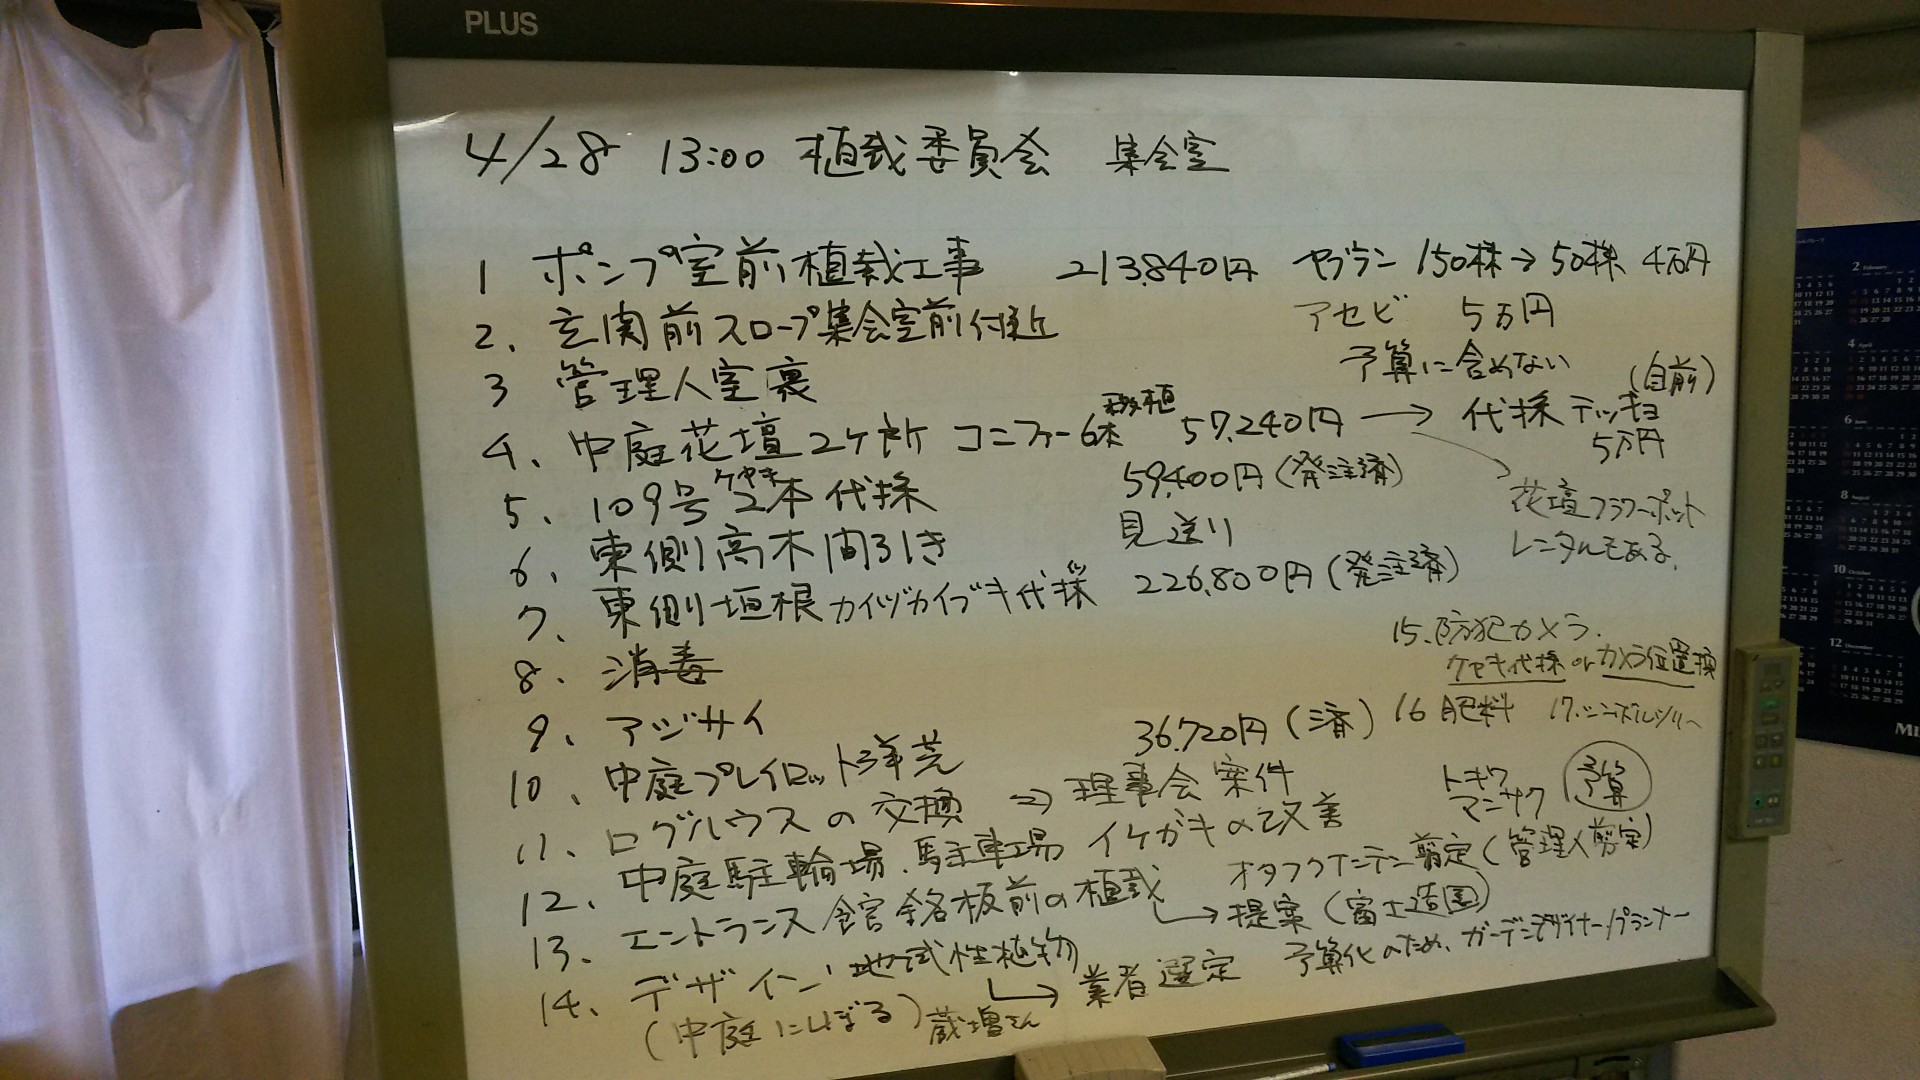 PLUS
4/28 13:00 植栽委員会 集会室
1 ポンプ室前植栽工事 213,840円 ヤブラン 150株→50株 4万円
アセビ 5万円
2. 玄関前スロープ集会室前付近
予算に含めない
3 管理人室裏
(自前)
移植
4、中庭花壇2ヶ所 コニファー6本 57,240円 → 伐採 テッキョ
5万円
花壇フラワーポット
レンタルもある。
ケヤキ
5、109号 2本伐採 59,400円(発注済)
6、東側高木間引き 見送り
7、東側垣根カイヅカイブキ伐採 226,800円(発注済)
8. 消毒
9、アジサイ 36,720円(済)
15.防犯カメラ.
ケヤキ伐採 or カメラ位置換
16 肥料 17.シンボルツリー
10、中庭プレイロット洋芝
11、ログハウスの交換 ⇒ 理事会案件
トキワ
マンサク 予算
12、中庭駐輪場、駐車場 イケガキの改善
オタフクナンテン剪定(管理人剪定)
13、エントランス館銘板前の植栽
→提案(富士造園)
14、デザイン 地域性植物
→業者選定 予算化のため、ガーデンデザイナー/プランナー
(中庭にしぼる) 蔵増さん
2 February
4 April
6 June
8 August
10 October
12 December